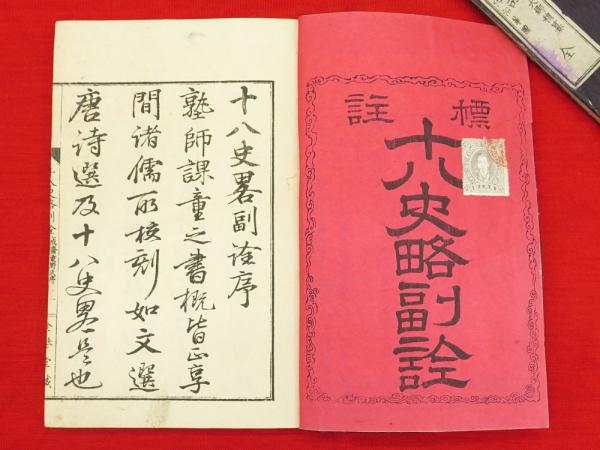 標註
十八史略副詮
十八史畧副詮序
塾師課童之書概皆正享
間諸儒所校刻如文選
唐詩選及十八史畧是也